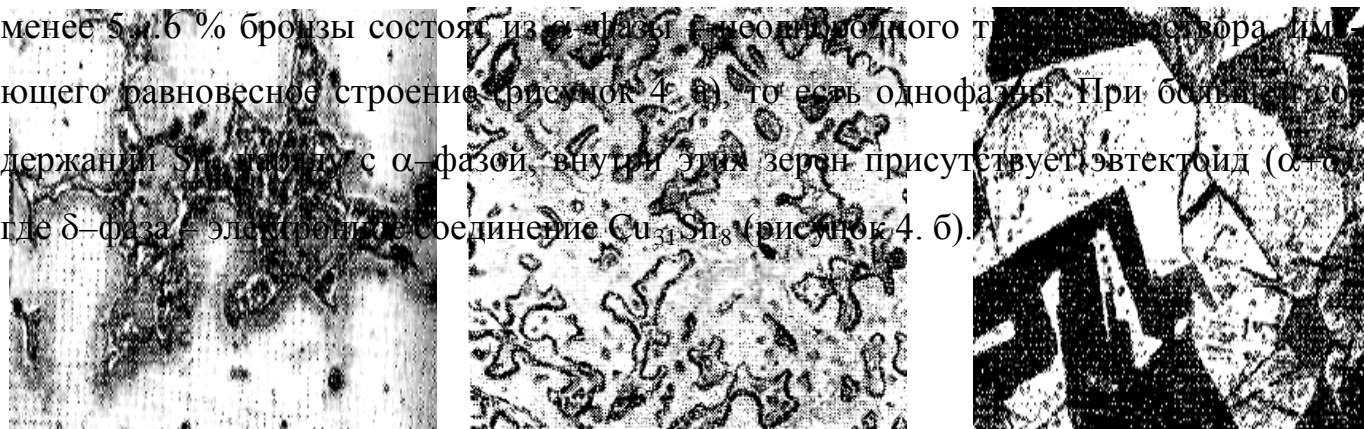 менее 5...6 % бронзы состоят из α–фазы – неоднородного раствора, име-
ющего равновесное строение (рисунок 4. а), то есть однофазны. При большем со-
держании Sn, наряду с α–фазой, внутри этих зерен присутствует эвтектоид (α+δ),
где δ–фаза – электронное соединение Cu₃₁Sn₈ (рисунок 4. б).